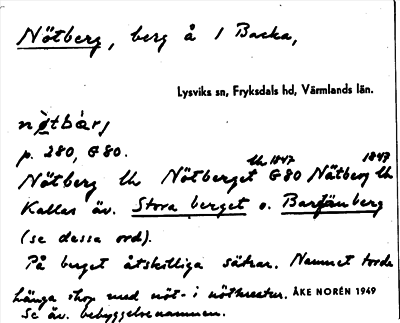 Nötberg, berg å 1 Backa,
Lysviks sn, Fryksdals hd, Värmlands län.
nötbàrj
p. 280, G80.
Nötberg lh Nötberget lh 1847 G80 Nätberg lh 1847
Kallas äv. Stora berget o. Barfänberg
(se dessa ord).
På berget åtskilliga sätrar. Namnet torde
hänga ihop med nöt- i nötkreatur. ÅKE NORÉN 1949
Se äv. bebyggelsenamnen.